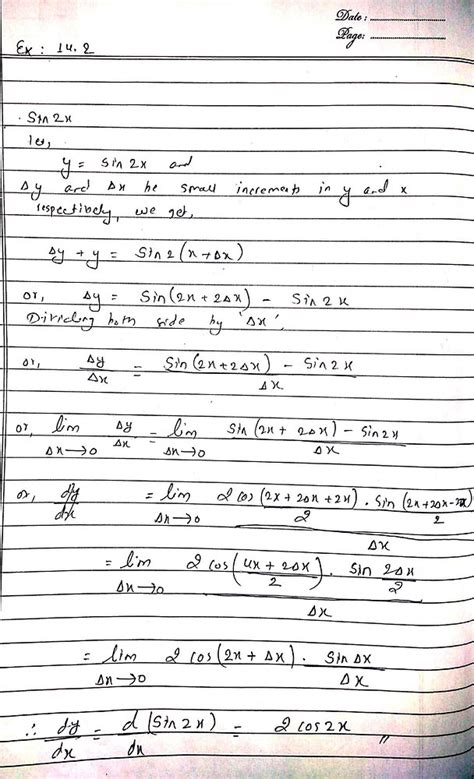 Date : ..................
Page: ..................
Ex : 14.2
. Sin 2x
let,
y = Sin 2x and
Δy and Δx be small increments in y and x
respectively, we get,
Δy + y = Sin 2 (x + Δx)
or, Δy = Sin (2x + 2Δx) - Sin 2x
Dividing both side by 'Δx'.
or, Δy/Δx = (Sin (2x + 2Δx) - Sin 2x)/Δx
or, lim Δx→0 Δy/Δx = lim Δx→0 (Sin (2x + 2Δx) - Sin 2x)/Δx
or, dy/dx = lim Δx→0 (2 cos (2x + 2Δx + 2x)/2 . Sin (2x + 2Δx - 2x)/2)/Δx
= lim Δx→0 (2 cos ((4x + 2Δx)/2) . Sin 2Δx/2)/Δx
= lim Δx→0 2 cos (2x + Δx) . Sin Δx/Δx
∴ dy/dx = d (Sin 2x)/dx = 2 cos 2x //